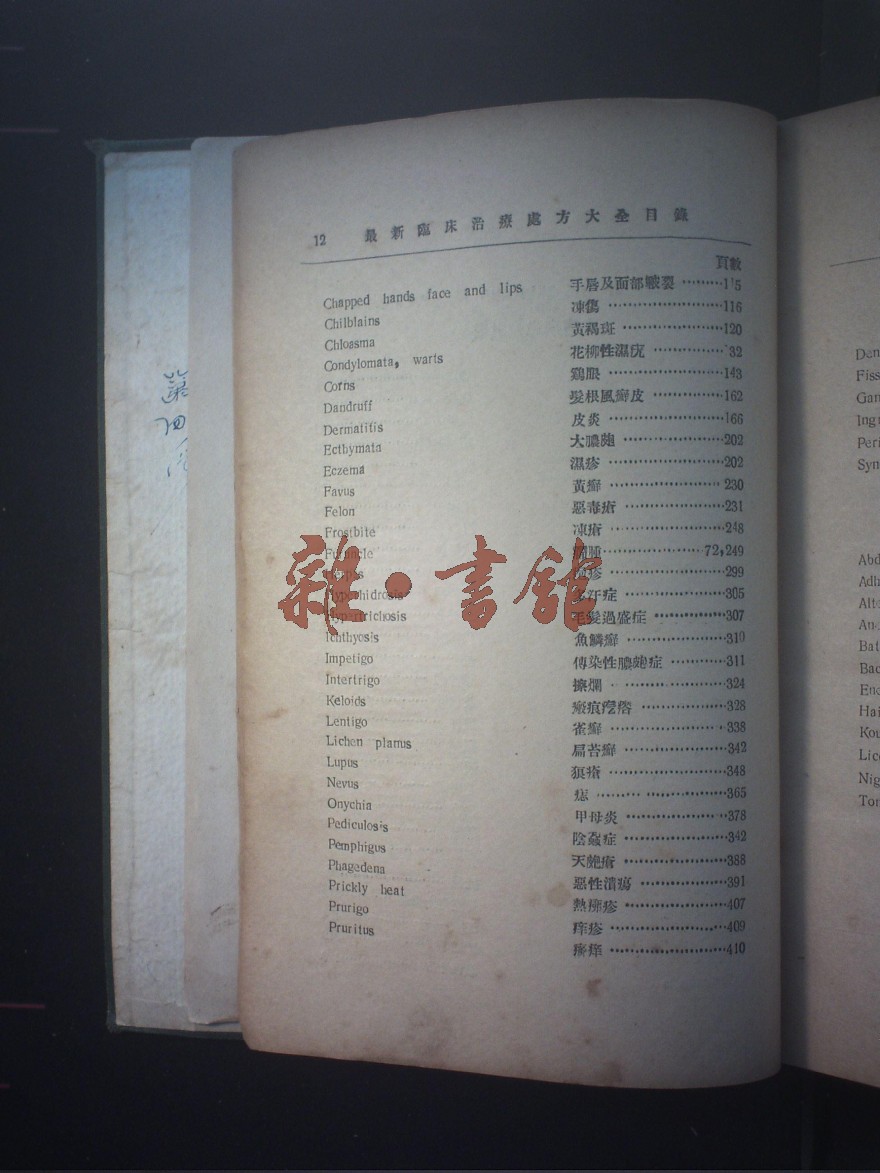 12 最新臨床治療處方大全目錄
頁數
Chapped hands face and lips 手唇及面部皸裂 ………115
Chilblains 凍傷 ………116
Chloasma 黃褐斑 ………120
Condylomata, warts 花柳性濕疣 ………32
Corns 鷄眼 ………143
Dandruff 髮根風癬皮 ………162
Dermatitis 皮炎 ………166
Ecthymata 大膿皰 ………202
Eczema 濕疹 ………202
Favus 黃癬 ………230
Felon 惡毒瘡 ………231
Frostbite 凍瘡 ………248
Furuncle 腫 ………72,249
疹 ………299
Hyperhidrosis 多汗症 ………305
Hypertrichosis 毛髮過盛症 ………307
Ichthyosis 魚鱗癬 ………310
Impetigo 傳染性膿皰症 ………311
Intertrigo 擦爛 ………324
Keloids 瘢痕疙瘩 ………328
Lentigo 雀癬 ………338
Lichen planus 扁苔癬 ………342
Lupus 狼瘡 ………348
Nevus 痣 ………365
Onychia 甲母炎 ………378
Pediculosis 陰蝨症 ………342
Pemphigus 天皰瘡 ………388
Phagedena 惡性潰瘍 ………391
Prickly heat 熱疿疹 ………407
Prurigo 痒疹 ………409
Pruritus 癢 ………410
雜·書館
Den
Fiss
Gan
Ingu
Peri
Syn
Abd
Adh
Alte
An
Bat
Bac
Enc
Hai
Kou
Lice
Nig
Ton